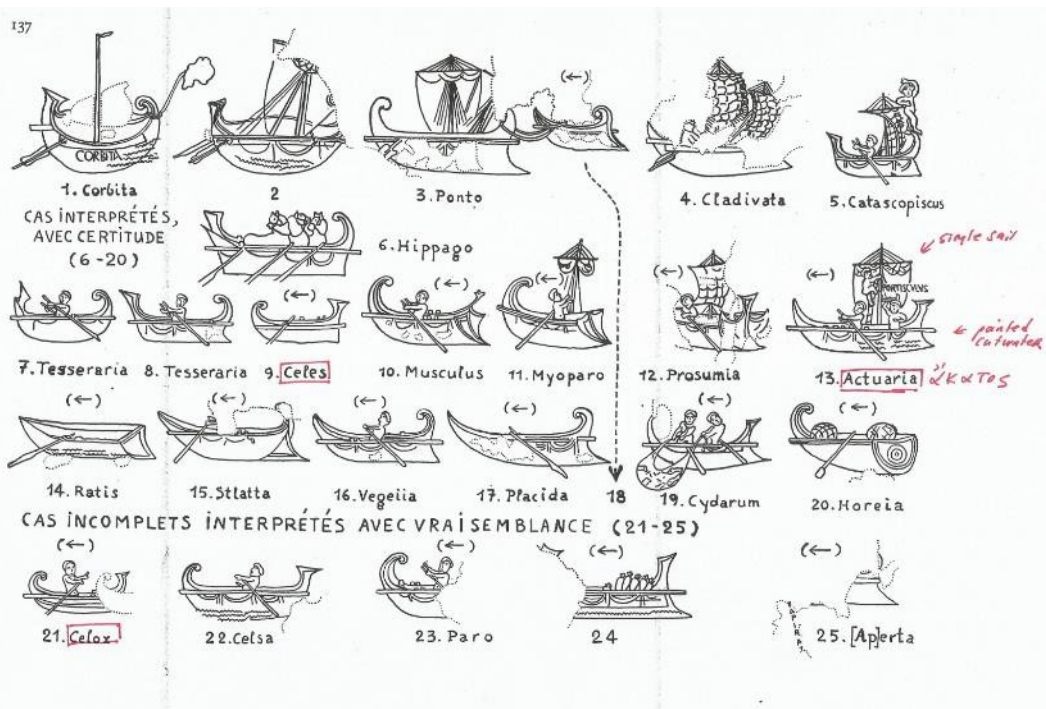 137
(←)
CORBITA
1. Corbita
2
3. Ponto
4. Cladivata
5. Catascopiscus
CAS INTERPRÉTÉS,
AVEC CERTITUDE
(6-20)
6. Hippago
single sail
(←) (←) (←) (←) (←)
PORTISCVLVS
← pointed
cutwater
7. Tesseraria
8. Tesseraria
9. Celes
10. Musculus
11. Myoparo
12. Prosumia
13. Actuaria
ἄκατος
(←) (←) (←) (←) (←) (←)
14. Ratis
15. Stlatta
16. Vegeiia
17. Placida
18
19. Cydarum
20. Horeia
CAS INCOMPLETS INTERPRÉTÉS AVEC VRAISEMBLANCE (21-25)
(←) (←) (←) (←) (←)
21. Celox
22. Celsa
23. Paro
24
25. [Ap]erta